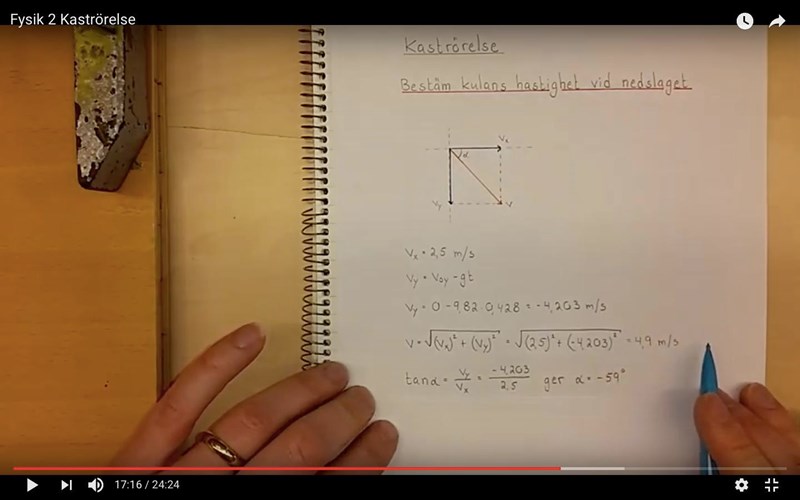 Fysik 2 Kaströrelse
Kaströrelse
Bestäm kulans hastighet vid nedslaget
Vx
α
Vy
V
Vx = 2,5 m/s
Vy = V0y - gt
Vy = 0 - 9,82 · 0,428 = -4,203 m/s
V = √((Vx)² + (Vy)²) = √((2,5)² + (-4,203)²) = 4,9 m/s
tanα = Vy/Vx = -4,203/2,5 ger α = -59°
17:16 / 24:24